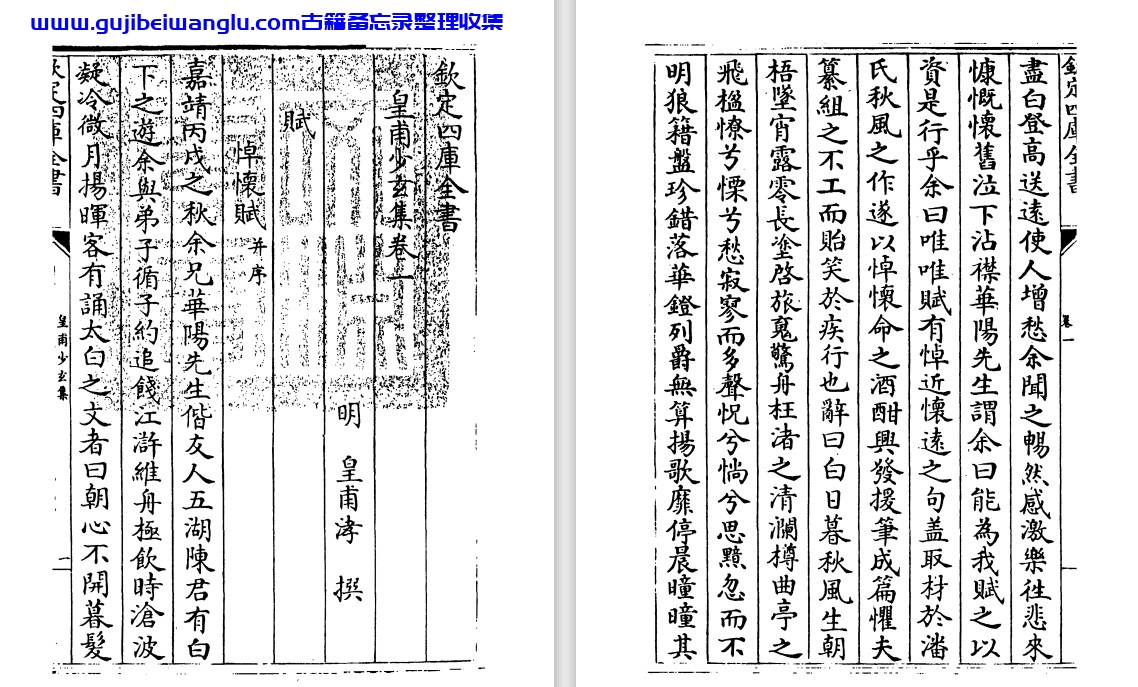 www.gujibeiwanglu.com古籍备忘录整理收集
欽定四庫全書
皇甫少玄集卷一
明 皇甫涍 撰
賦
悼懷賦 并序
嘉靖丙戌之秋余兄華陽先生偕友人五湖陳君有白
下之遊余與弟子循子約追餞江滸維舟極飲時滄波
凝冷微月揚暉客有誦太白之文者曰朝心不開暮髮
欽定四庫全書 皇甫少玄集 一
欽定四庫全書 卷一
盡白登高送遠使人增愁余聞之暢然感激樂往悲來
慷慨懷舊泣下沾襟華陽先生謂余曰能為我賦之以
資是行乎余曰唯唯賦有悼近懷遠之句盖取材於潘
氏秋風之作遂以悼懷命之酒酣興發援筆成篇懼夫
纂組之不工而貽笑於疾行也辭曰白日暮秋風生朝
梧墜宵露零長塗啓旅䰟驚舟枉渚之清瀾樽曲亭之
飛楹憭兮慄兮愁寂寥而多聲怳兮惝兮思黯忽而不
明狼籍盤珍錯落華鐙列爵無算揚歌靡停晨曈曈其